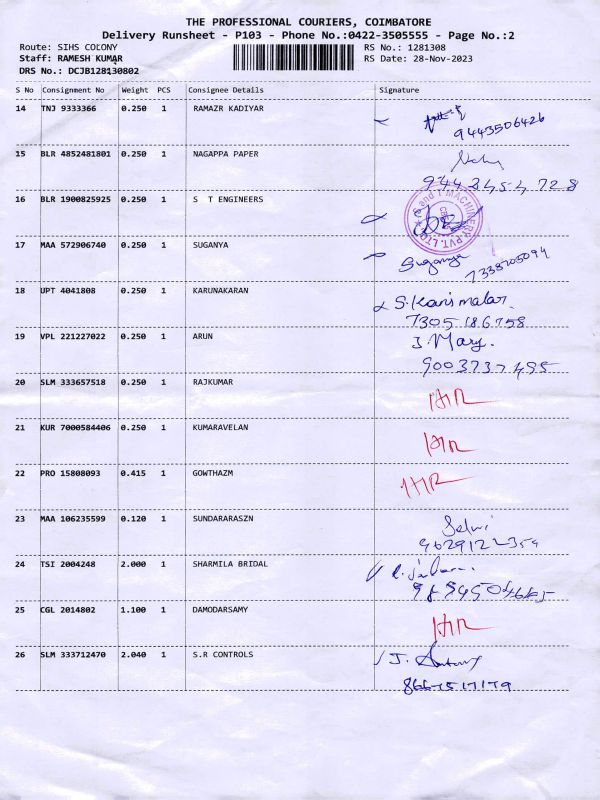 THE PROFESSIONAL COURIERS, COIMBATORE
Delivery Runsheet - P103 - Phone No.:0422-3505555 - Page No.:2
Route: SIHS COLONY RS No.: 1281308
Staff: RAMESH KUMAR RS Date: 28-Nov-2023
DRS No.: DCJB128130802
S No Consignment No Weight PCS Consignee Details Signature
14 TNJ 9333366 0.250 1 RAMAZR KADIYAR
9443506426
15 BLR 4852481801 0.250 1 NAGAPPA PAPER
9443454728
16 BLR 1900825925 0.250 1 S T ENGINEERS
S and T MACHINERY PVT. LTD.
17 MAA 572906740 0.250 1 SUGANYA Suganya
7338705094
18 UPT 4041808 0.250 1 KARUNAKARAN S. Kanimalar
7305186758
19 VPL 221227022 0.250 1 ARUN J. Mary.
9003737495
20 SLM 333657518 0.250 1 RAJKUMAR
21 KUR 7000584406 0.250 1 KUMARAVELAN
22 PRO 15808093 0.415 1 GOWTHAZM
23 MAA 106235599 0.120 1 SUNDARARASZN Selvi
9629122354
24 TSI 2004248 2.000 1 SHARMILA BRIDAL
25 CGL 2014802 1.100 1 DAMODARSAMY
26 SLM 333712470 2.040 1 S.R CONTROLS J. Antony
8667517179